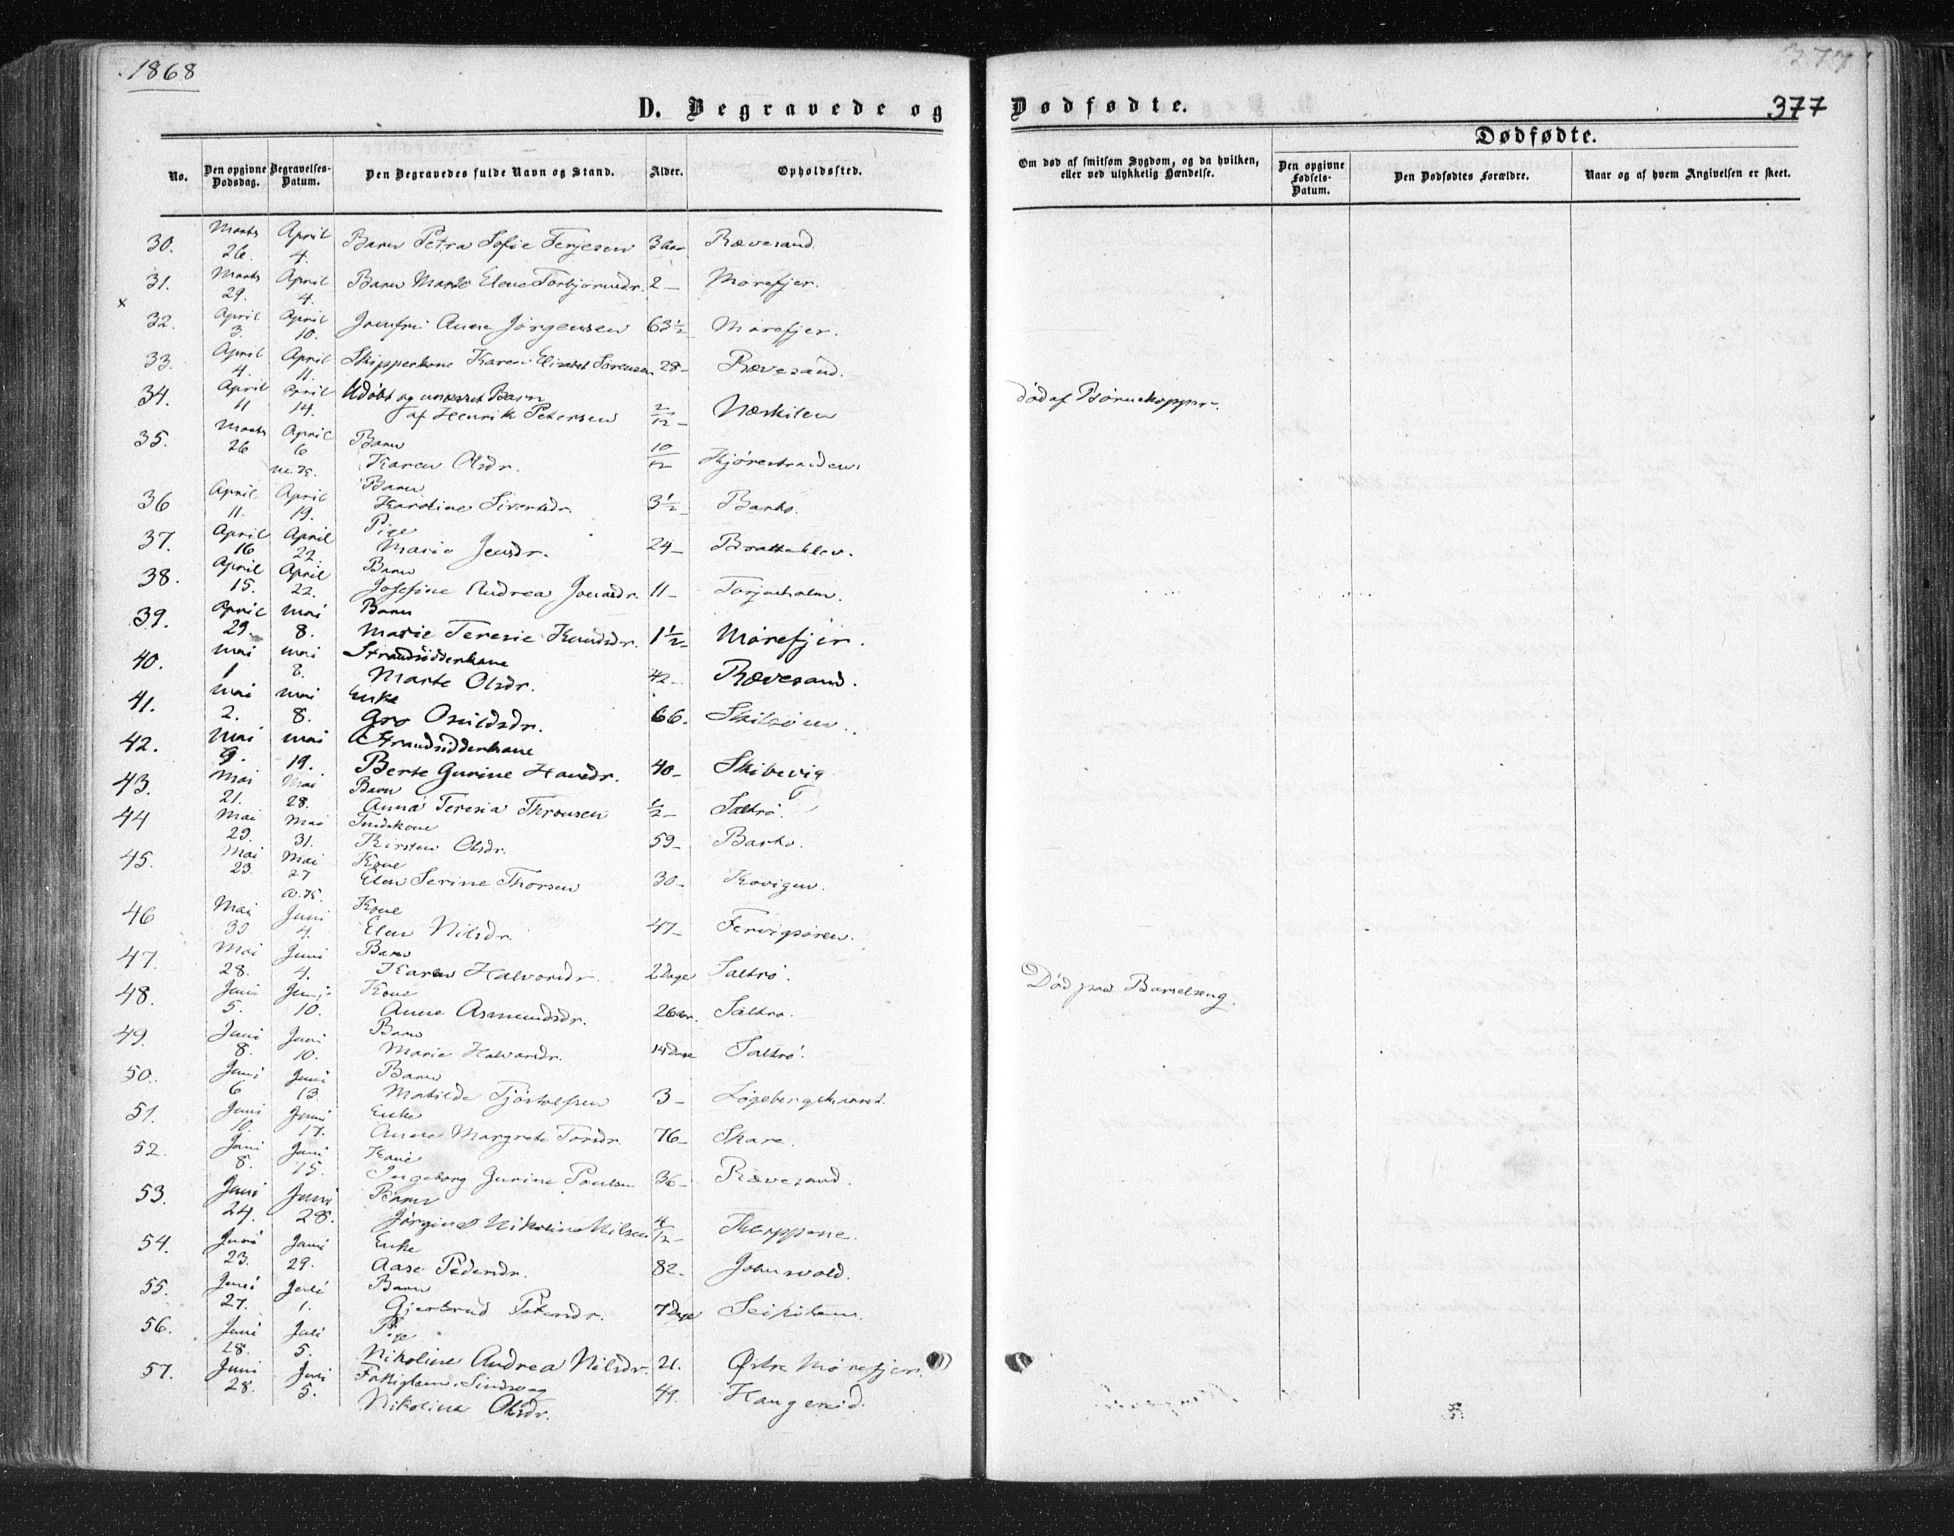 1868
377
D. Begravede og Dødfødte.
377
Dødfødte.
No.
Den opgivne Dødsdag.
Begravelses-Datum.
Den Begravedes fulde Navn og Stand.
Alder.
Opholdssted.
Om død af smitsom Sygdom, og da hvilken, eller ved ulykkelig Hændelse.
Den opgivne Fødsels-Datum.
Den Dødfødtes Forældre.
Naar og af hvem Angivelsen er skeet.
30. Marts 26. April 4. Barn Petra Sofie Terjesen 3 aar Rævesand.
31. Marts 29. April 4. Barn Marte Elene Torbjørnsdr. 2 – Mørefjer.
x
32. April 3. April 10. Jomfru Anne Jørgensen 63½ Mørefjer.
33. April 4. April 11. Skipperkone Karen Elisabet Sørensen 28 – Rævesand.
34. April 11 April 14. Udøbt og unævnt Barn
af Henrik Petersen 2/12 – Næskilen død af Børnekopper.
35. Marts 26 April 6 Barn
Karen Olsdr. 10/12 Kjørestranden.
36 April 11. April 19. Barn
Karoline Sivertsdr. 3½ – Barbo.
37. April 16 April 22. Pige
Marie Jensdr. 24 – Bratteklev.
38. April 15. April 22. Barn
Josefine Andrea Jonasdr. 11 – Torjusholm.
39. April 29. Mai 8. Barn
Marie Teresie Knudsdr. 1½ – Mørefjer.
40. Mai 1 Mai 8. Strandsidderkone
Marte Olsdr. 42 – Rævesand.
41. Mai 2. Mai 8. Enke
Gro Osuldsdr. 66. Skilsøen.
42. Mai 9. Mai 19. Strandsidderkone
Berte Gurine Hansdr. 40 – Skibevig
43. Mai 21. Mai 28. Barn
Anna Teresia Thronsen ½ – Saltrø.
44 Mai 29. Mai 31. Indskone
Kirsten Olsdr. 59 – Barbo.
45. Mai 23. Mai 27 Kone
Elen Serine Thorsen 30 – Kovigen.
46 Mai 30 Juni 4. Kone
Elen Nilsdr. 47 – Fervigsøren.
47. Mai 28. Juni 4. Barn
Karen Halvorsdr. 2 Dage Saltrø.
48. Juni 5. Juni 10. Kone
Anne Asmundsdr. 26 aar. Saltrø. Død paa Barselseng.
49. Juni 8. Juni 10. Barn
Marie Halvorsdr. 14 Dage Saltrø.
50. Juni 6 Juni 13 Barn
Matilde Tjøstolfsen 3 – Løgebergskaaret.
51. Juni 10. Juni 17. Enke
Anne Margrete Torsdr. 76 – Skare.
52. Juni 8. Juni 15. Kone
Ingeborg Gurine Poulsen 36 – Rævesand.
53. Juni 24. Juni 28. Barn
Jørgine Nikoline Nilsen 4/12 – Kleppene.
54. Juni 23. Juni 29. Enke
Aase Pedersdr. 82 – Johnsvold.
55. Juni 27. Juli 1. Barn
Gjertrud Petersdr. 7 Dage Seikilen.
56. Juni 28. Juli 5. Pige
Nikoline Andrea Nilsdr. 21. Østre Mørefjer.
57. Juni 28. Juli 5. Fattiglem, Sindssvag
Nikoline Olsdr. 49. Haugenid.